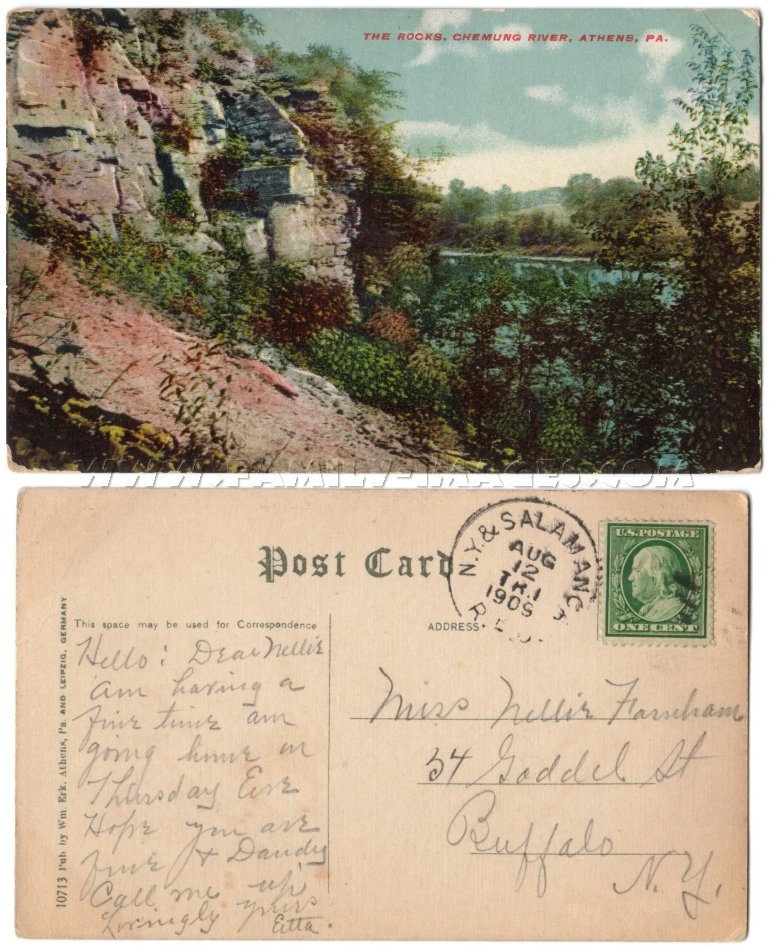 THE ROCKS, CHEMUNG RIVER, ATHENS, PA.
WWW.FAMILY-IMAGES.COM
Post Card
N.Y. & SALAMANC
AUG
12
TR.1
1909
R.P.O.
U.S. POSTAGE
ONE CENT
This space may be used for Correspondence
ADDRESS
10713 Pub. by Wm. Erk, Athens, Pa. AND LEIPZIG, GERMANY
Hello! Dear Nellie
am having a
fine time am
going home on
Thursday Eve
Hope you are
fine & Dandy
Call me up
Lovingly yours
Etta.
Miss Nellie Farnham
54 Goddel St
Buffalo
N.Y.